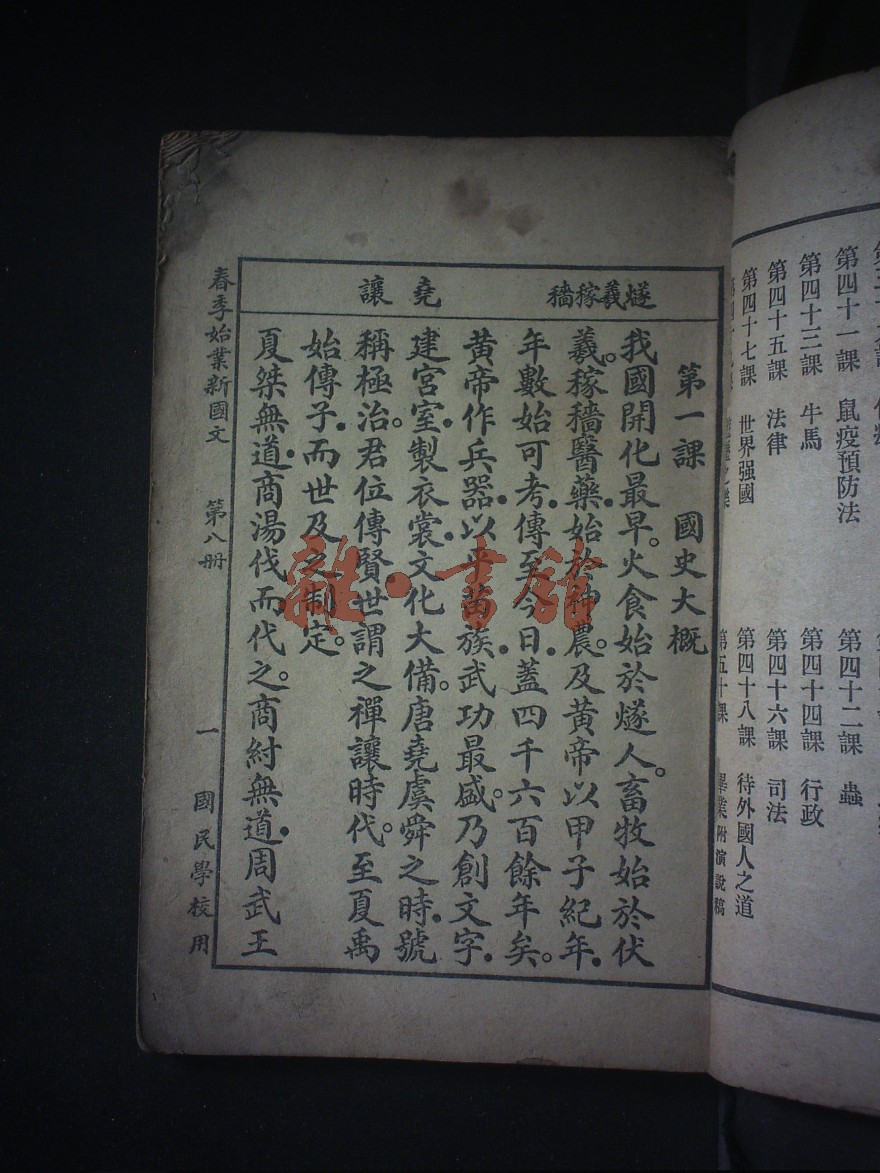 第四十一課 鼠疫預防法
第四十二課 蟲
第四十三課 牛馬
第四十四課 行政
第四十五課 法律
第四十六課 司法
第四十七課 世界强國
第四十八課 待外國人之道
第五十課 畢業附演說稿
燧羲稼穡
堯讓
第一課 國史大概
我國開化最早。火食始於燧人。畜牧始於伏
羲。稼穡醫藥。始於神農。及黃帝以甲子紀年。
年數始可考。傳至今日。蓋四千六百餘年矣。
黃帝作兵器。以平苗族。武功最盛。乃創文字。
建宮室。製衣裳。文化大備。唐堯虞舜之時。號
稱極治。君位傳賢。世謂之禪讓時代。至夏禹
始傳子。而世及之制定。
夏桀無道。商湯伐而代之。商紂無道。周武王
春季始業新國文 第八册 一 國民學校用
雜·書館